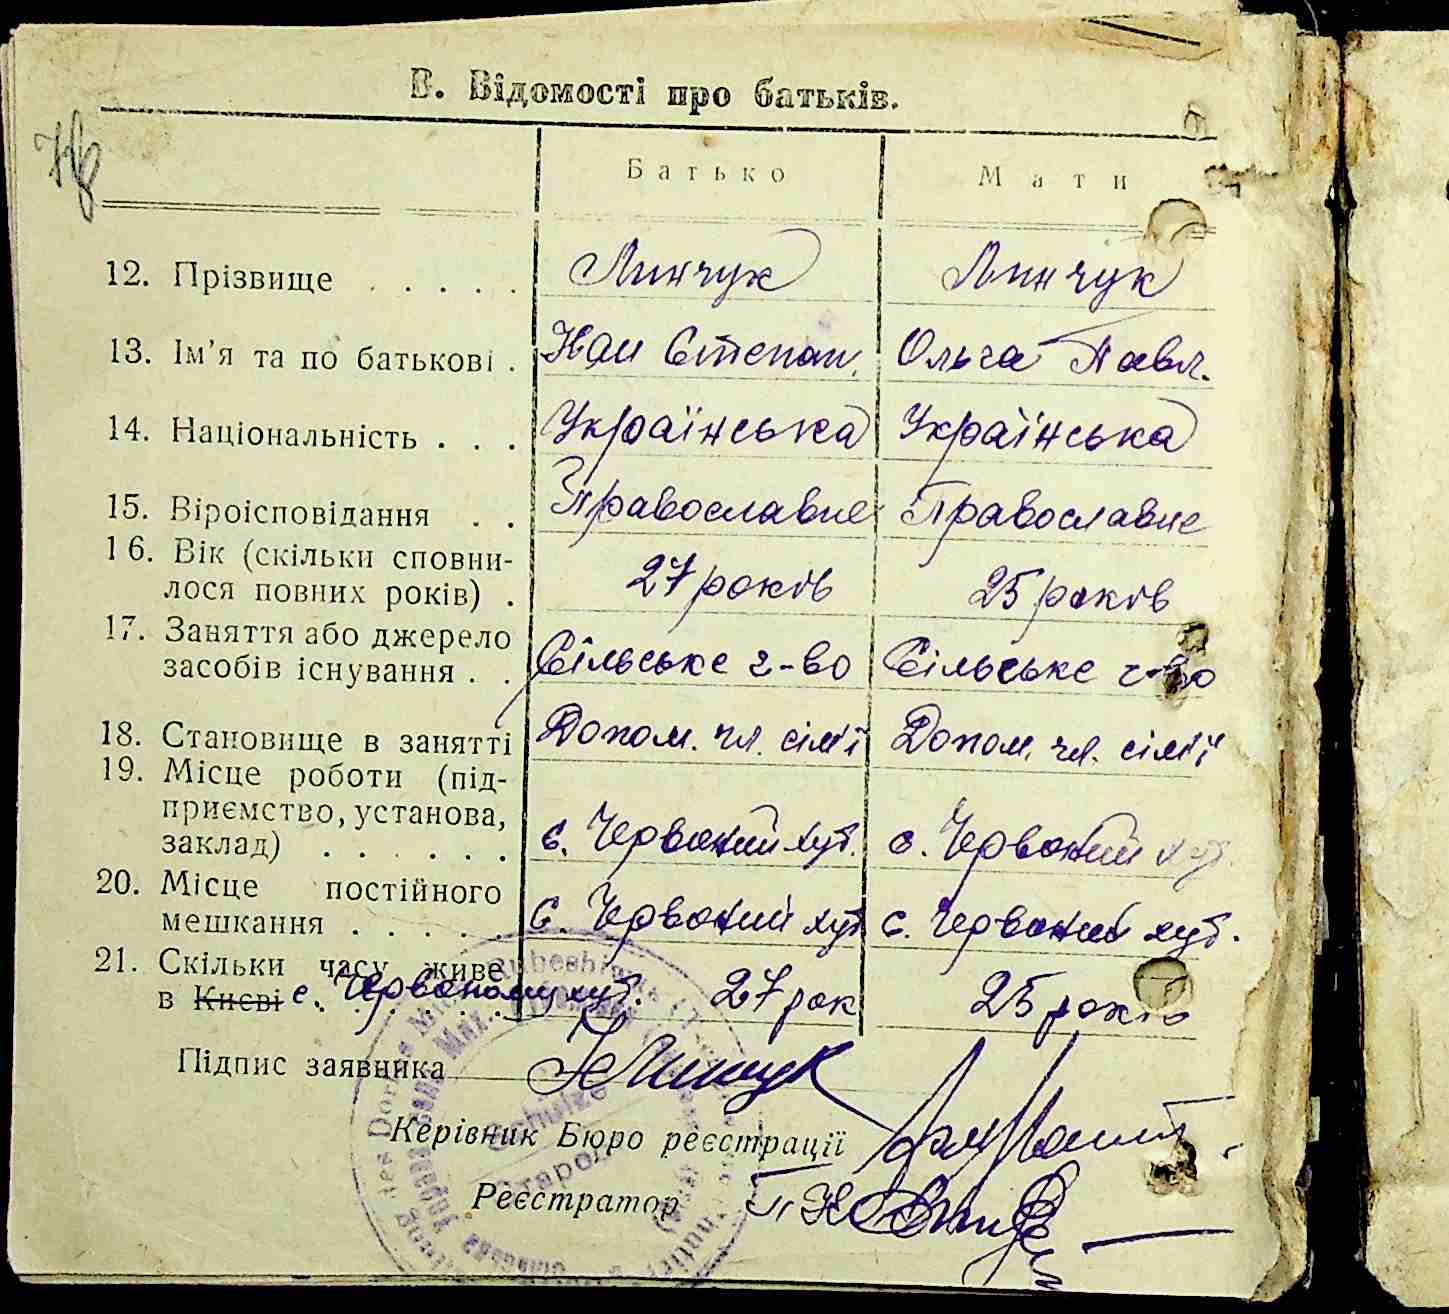 В. Відомості про батьків.
Батько Мати
12. Прізвище . . . . . Линчук Линчук
13. Ім'я та по батькові . Іван Степан. Ольга Павл.
14. Національність . . . Українська Українська
15. Віроісповідання . . Православне Православне
16. Вік (скільки сповни-
лося повних років) . 27 років 25 років
17. Заняття або джерело
засобів існування . . Сільське г-во Сільське г-во
18. Становище в занятті Допом. чл. сім'ї Допом. чл. сім'ї
19. Місце роботи (під-
приємство, установа,
заклад) . . . . . . с. Червоний хут. с. Червоний хут.
20. Місце постійного
мешкання . . . . . с. Червоний хут с. Червоний хут.
21. Скільки часу живе
в Києві с. Червоному хут. 27 рок 25 років
Підпис заявника
Керівник Бюро реєстрації
Реєстратор